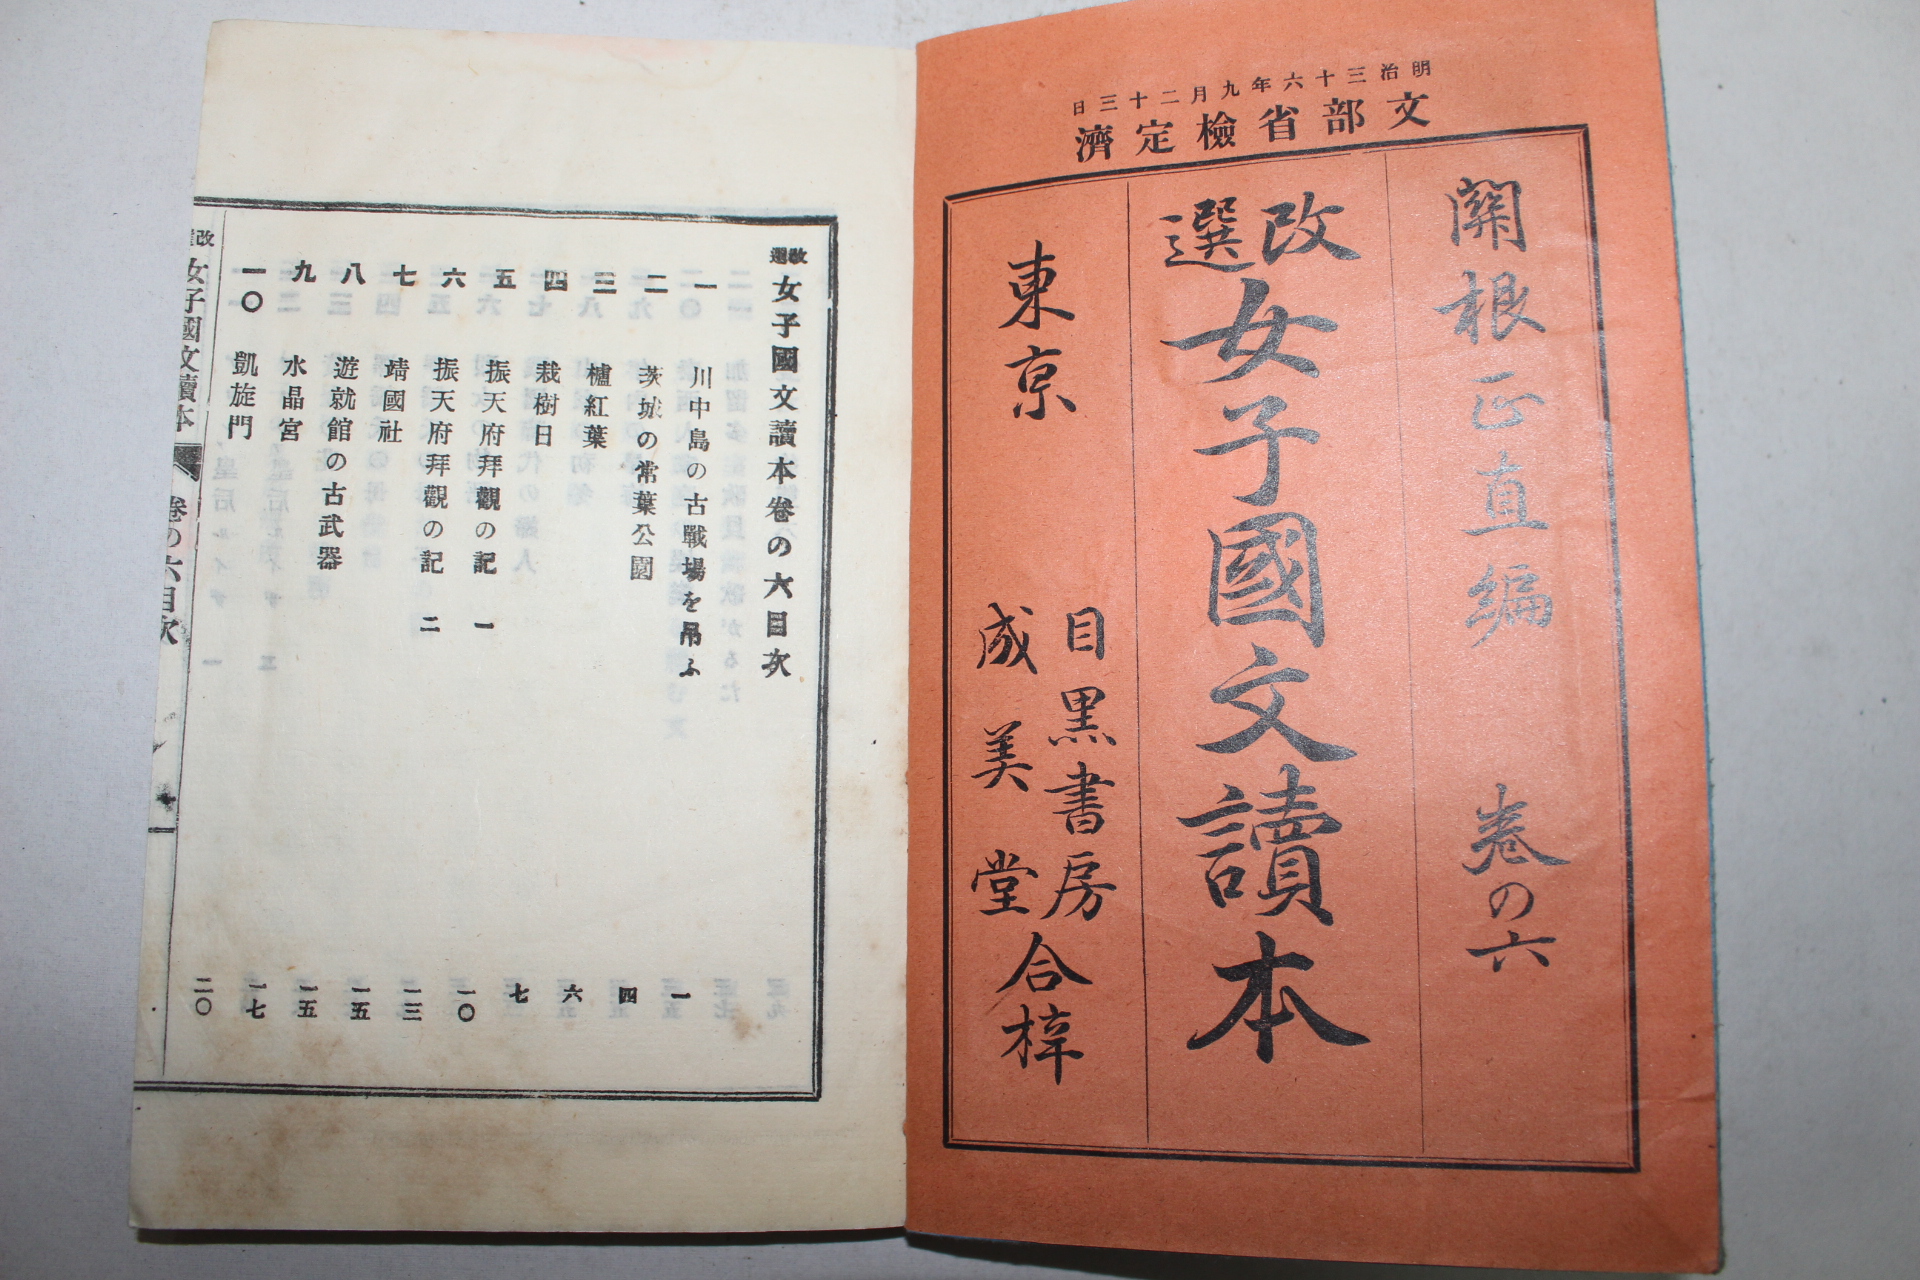 明治三十六年九月二十三日
文部省檢定濟
關根正直編 卷の六
改選 女子國文讀本
東京 目黒書房 成美堂 合梓
改選 女子國文讀本卷の六目次
一 川中島の古戰場を吊ふ 一
二 茨城の常葉公園 四
三 櫨紅葉 六
四 栽樹日 七
五 振天府拜觀の記 一 一〇
六 振天府拜觀の記 二 一三
七 靖國社 一五
八 遊就館の古武器 一五
九 水晶宮 一七
一〇 凱旋門 二〇
女子國文讀本 卷の六目次 一